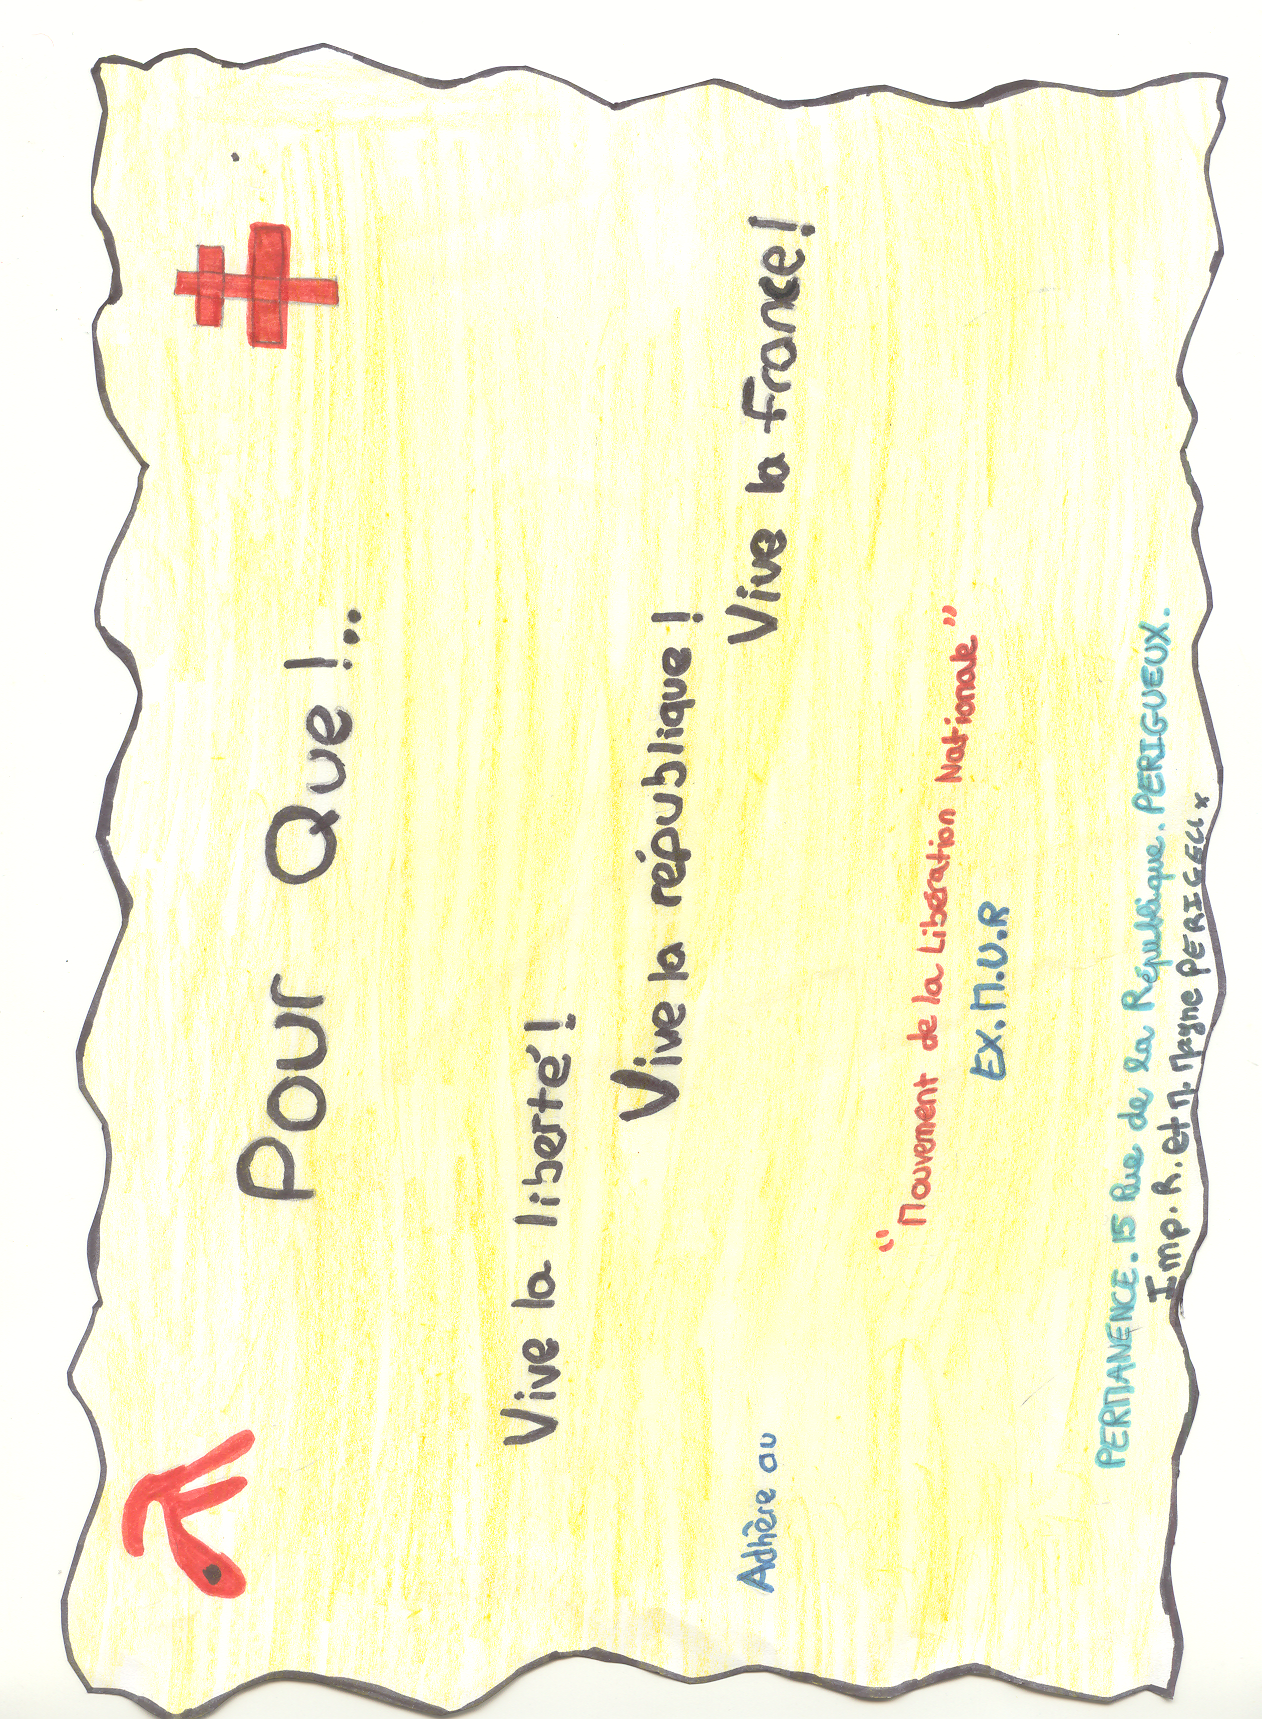 Pour Que !...
Vive la liberté !
Vive la république !
Vive la France !
Adhère au
"Mouvement de la Libération Nationale"
EX.M.U.R
PERMANENCE. 15 Rue de la République. PERIGUEUX.
Imp. R. et M. Mayne PERIGEUx